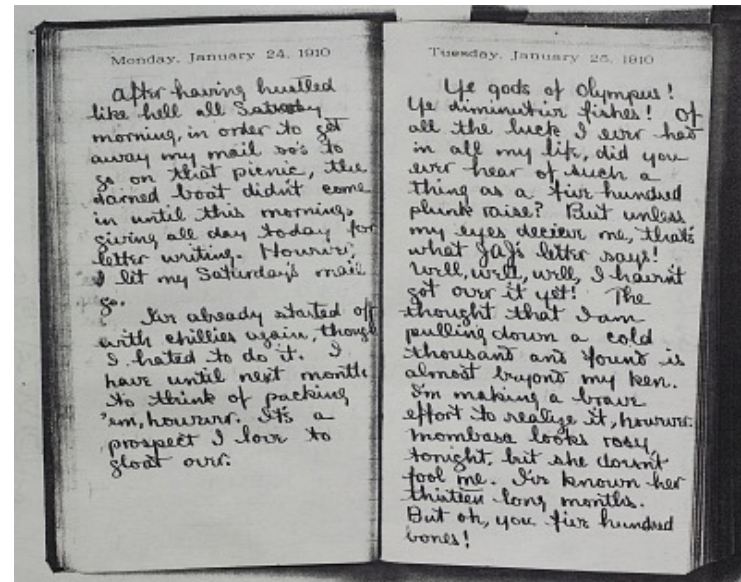 Monday, January 24, 1910
After having hustled
like hell all Saturday
morning, in order to get
away my mail so's to
go on that picnic, the
darned boat didn't come
in until this morning,
giving all day today for
letter writing. However,
I let my Saturday's mail
go.
I've already started off
with chillies again, though
I hated to do it. I
have until next month
to think of packing
'em, however. It's a
prospect I love to
gloat over.
Tuesday, January 25, 1910
Ye gods of Olympus!
Ye diminutive fishes! Of
all the luck I ever had
in all my life, did you
ever hear of such a
thing as a five hundred
plunk raise? But unless
my eyes decieve me, that's
what JAJ's letter says!
Well, well, well, I haven't
got over it yet! The
thought that I am
pulling down a cold
thousand and found is
almost beyond my ken.
I'm making a brave
effort to realize it, however.
Mombasa looks rosy
tonight, but she doesn't
fool me. I've known her
thirteen long months.
But oh, you five hundred
bones!